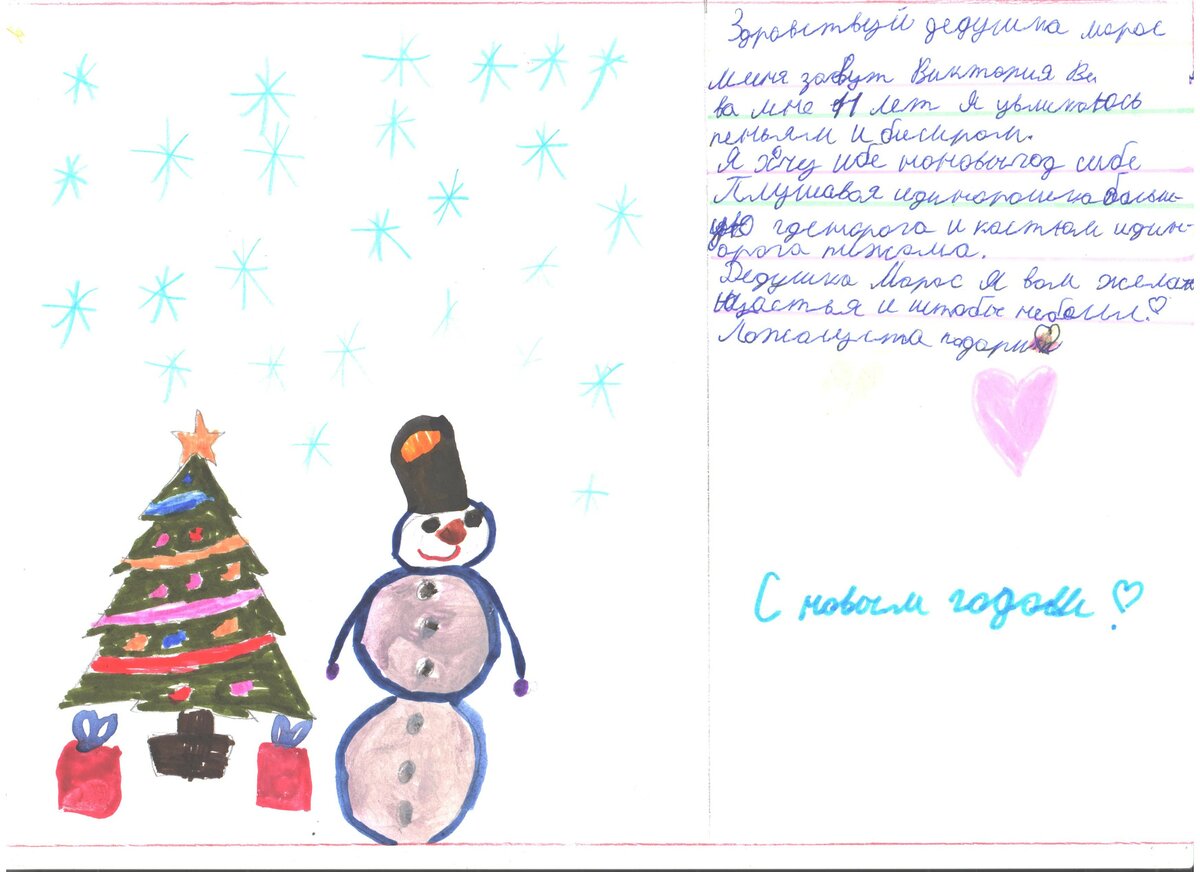 Здравствуй дедушка морос
меня завут Виктория Ви
ва мне 11 лет Я увликаюсь
пеньям и бисиром.
Я Хочу ибе нановыгод сибе
Плушавая идинорошка больш-
ую гдеторога и костюм идин-
орога пижама.
Дедушка Марос Я вам желаю
щастья и штобы неболи!♡
Пожалуста подари
С новым годом!♡